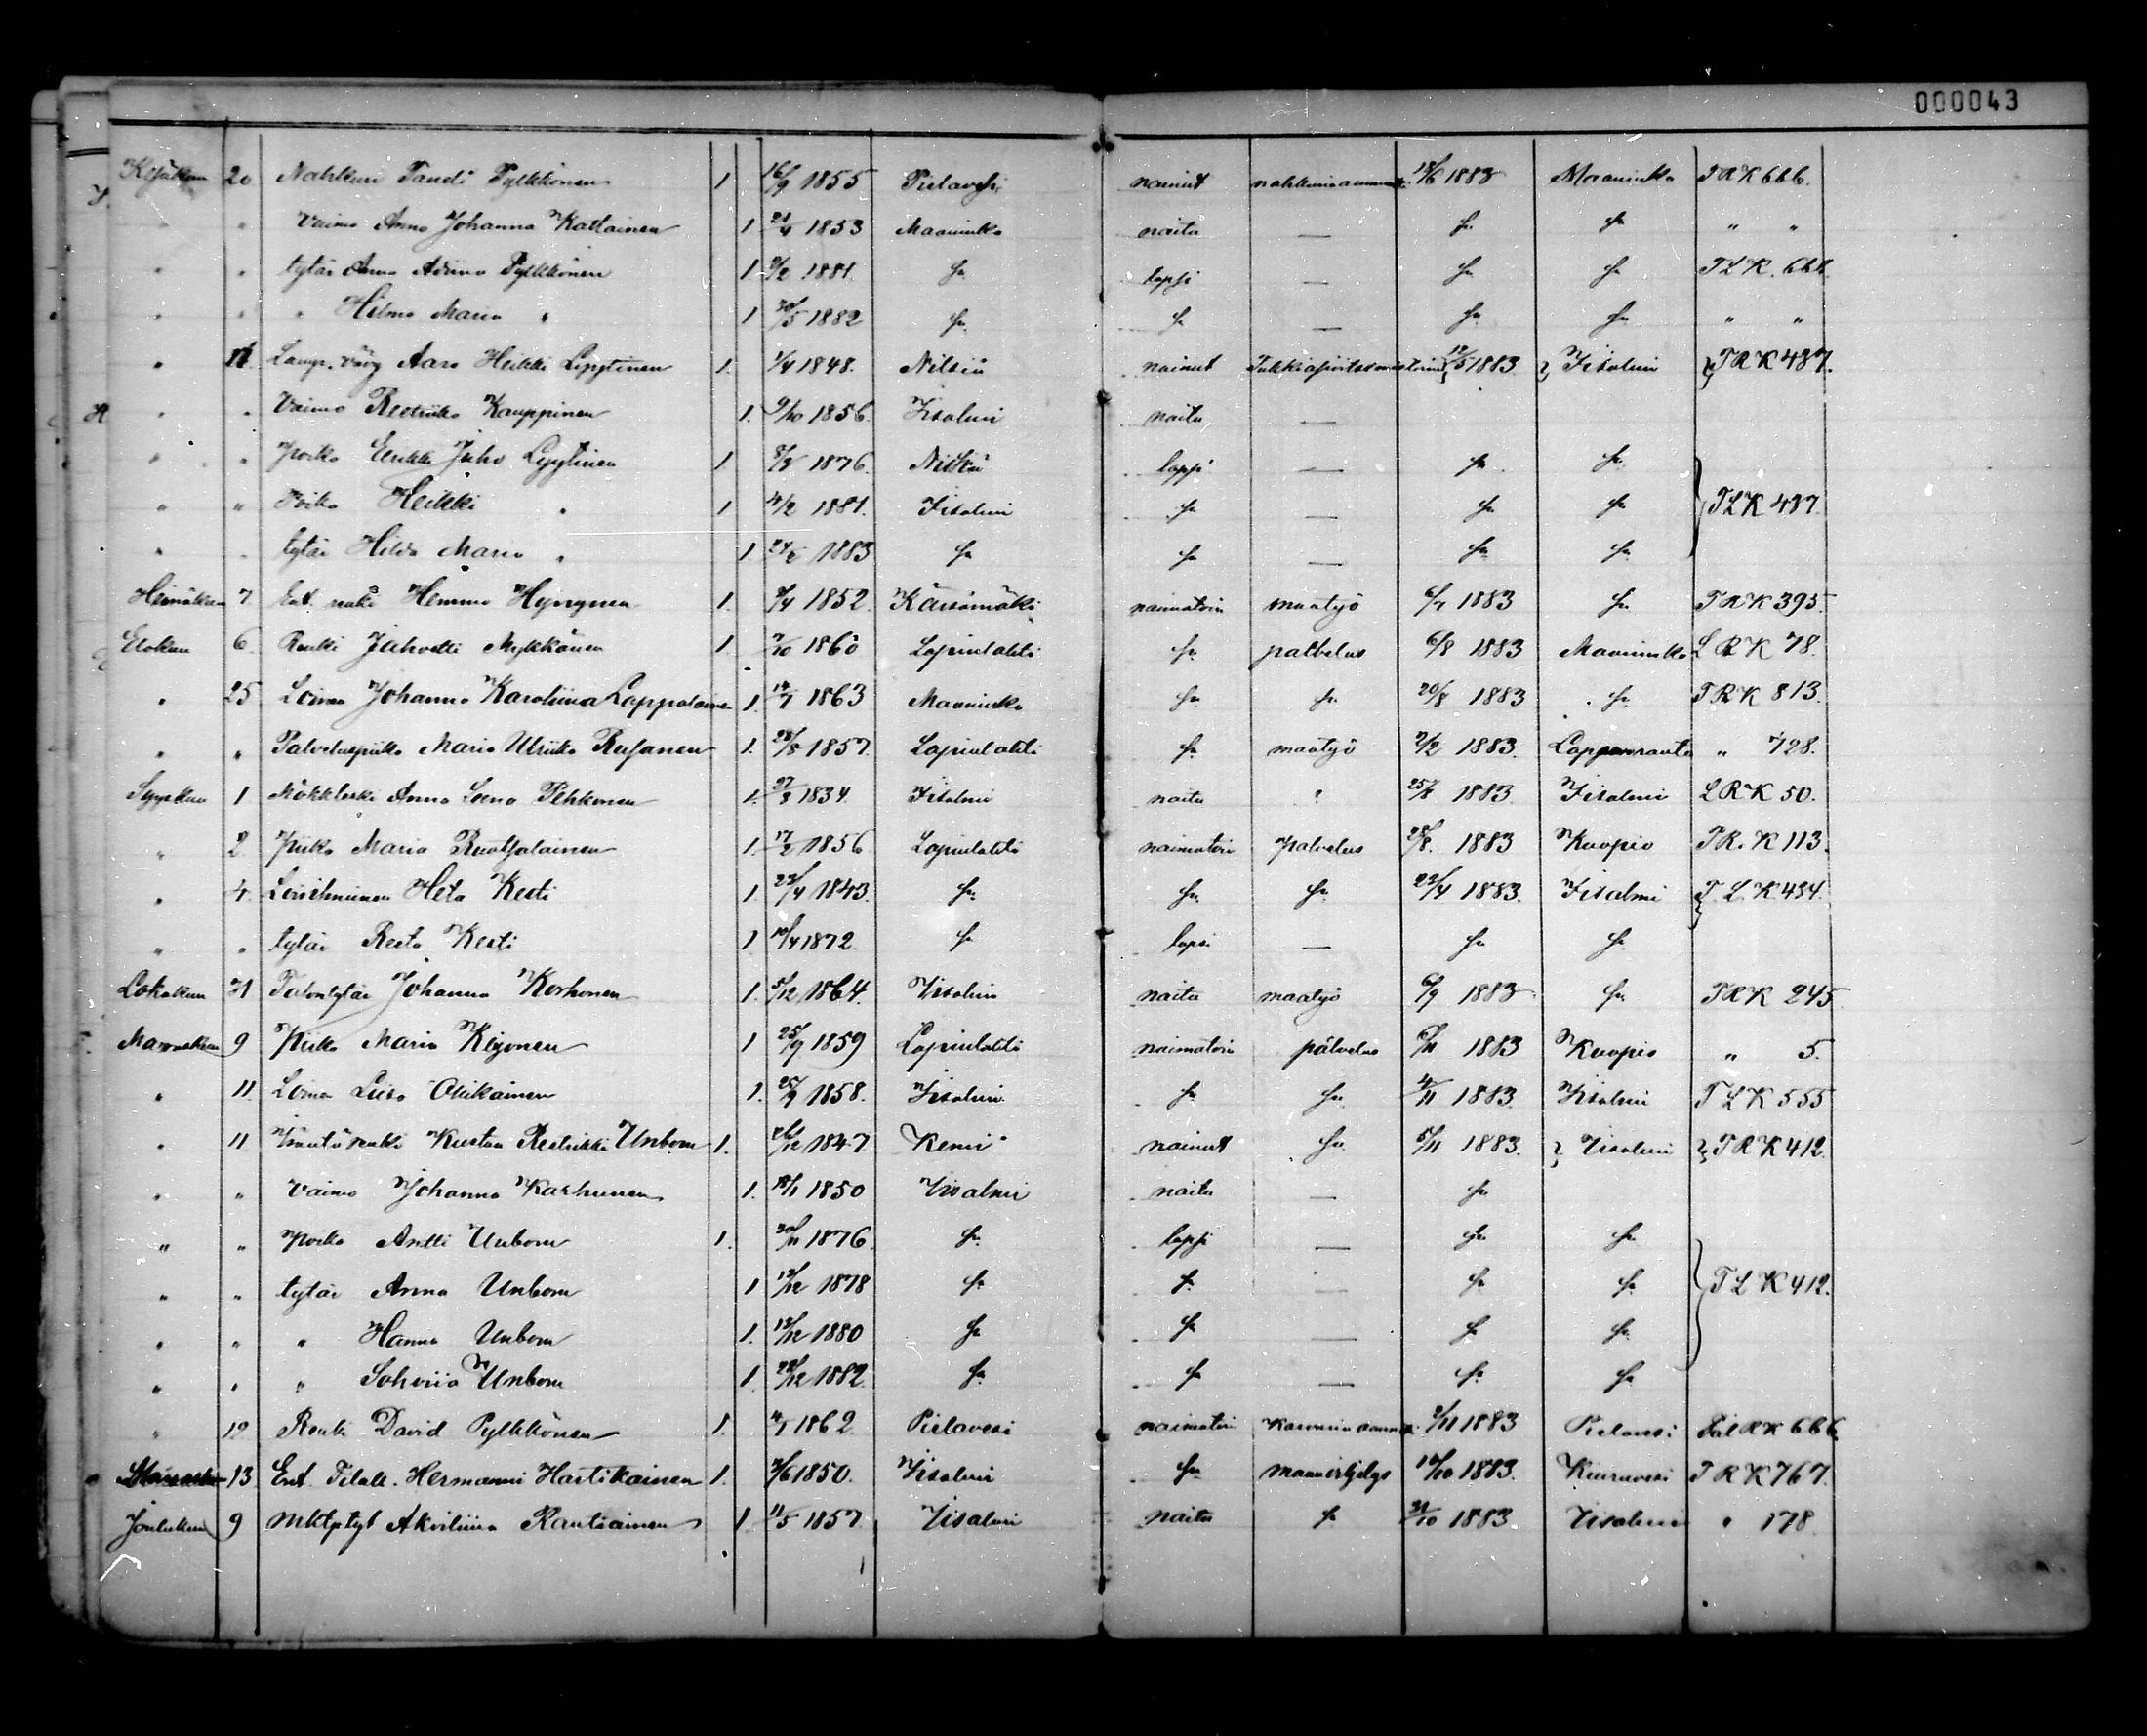 000043
Kesäkuu 20 Nahkuri Taneli Pylkkönen 1 16/9 1855 Pielavesi nainut 18/6 1883 Maaninka T R K 666.
" " Vaimo Anna Johanna Kattainen 1 21/4 1853 Maaninka naitu — sn sn " "
" " tytär Anna Adiina Pylkkönen 1 9/2 1881. sn lapsi — sn sn T L K. 664
" " " Hilma Maria " 1 30/5 1882 sn sn — sn sn " "
" 21 Lamp. vävy Aaro Heikki Lyytinen 1. 1/4 1848. Nilsiä nainut 12/5 1883 } Iisalmi } T R K 437.
" " Vaimo Reetriika Kauppinen 1. 9/10 1856. Iisalmi naitu —
" " poika Eerikki Juho Lyytinen 1 8/8 1876. Nilsiä lapsi — sn sn
" " Poika Heikki " 1 4/2 1881. Iisalmi sn — sn sn } T L K 437.
" " tytär Hilda Maria " 1 24/2 1883 sn sn — sn sn
Heinäkuu 7 Ent. renki Hemmo Hynynen 1. 9/4 1852. Kärsämäki naimatoin maatyö 6/7 1883 sn T R K 395.
Elokuu 6 Renki Jahvetti Mykkänen 1. 7/10 1860 Lapinlahti sn palvelus 6/8 1883 Maaninka L R K 78.
" 25 Loinen Johanna Karoliina Lappalainen 1. 14/7 1863 Maaninka sn sn 20/8 1883 sn T R K 813.
" " Palveluspiika Maria Ulriika Rusanen 1. 28/8 1857. Lapinlahti sn maatyö 2/2 1883. Lappeenranta " 728.
Syyskuu 1 Mökkleski Anna Leena Pehkonen 1. 27/3 1834. Iisalmi naitu ? 25/8 1883. Iisalmi L R K 50.
" 2. Piika Maria Ruotsalainen 1. 17/2 1856. Lapinlahti naimatoin palvelus 28/8. 1883 Kuopio T R. K 113.
" 4. Loisihminen Heta Kesti 1. 22/4 1843. sn sn sn 22/4 1883. Iisalmi } T. L. K. 434.
" " tytär Reeta Kesti 1 10/4 1872. sn lapsi — sn sn
Lokakuu 31 Talontytär Johanna Korhonen 1. 5/12 1864. Iisalmi naitu maatyö 6/9 1883 sn T R K 245.
Marraskuu 9 Piika Maria Keijonen 1 25/9 1859 Lapinlahti naimatoin palvelus 6/11 1883 Kuopio " 5.
" 11. Loinen Liisa Ollikainen 1. 25/9 1858. Iisalmi sn sn 4/11 1883. Iisalmi T L K 555
" 11 Kustaa Reetrikki Unbom 1. 1847 Kemi nainut sn 5/11 1883. } Iisalmi } T R K 412.
" " Vaimo Johanna Karhunen 1. 18/1 1850 Iisalmi naitu — sn
" " poika Antti Unbom 1. 30/11 1876. sn lapsi — sn sn
" " tytär Anna Unbom 1 13/12 1878 sn sn — sn sn } T L K 412.
" " " Hanna Unbom 1. 12/12 1880 sn sn — sn sn
" " " Sohviia Unbom 1. 28/12 1882. sn sn — sn sn
" 12 Renki David Pylkkönen 1. 4/1 1862. Pielavesi naimatoin 2/11 1883 Pielavesi R K 666
13. Ent. Tilall. Hermanni Hartikainen 1. 7/6 1850. Iisalmi sn maanviljelys 10/10 1883. Kiuruvesi T R K 767.
Joulukuu 9 mktptyt Akviliina Rautiainen 1 11/5 1857. Iisalmi naitu sn 31/10 1883. Iisalmi " 178.